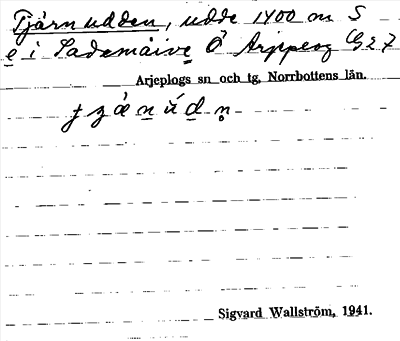 Tjärnudden, udde 1400 m S
e i Sademåive Ö Arjeplog G27
Arjeplogs sn och tg, Norrbottens län.
Sigvard Wallström, 1941.